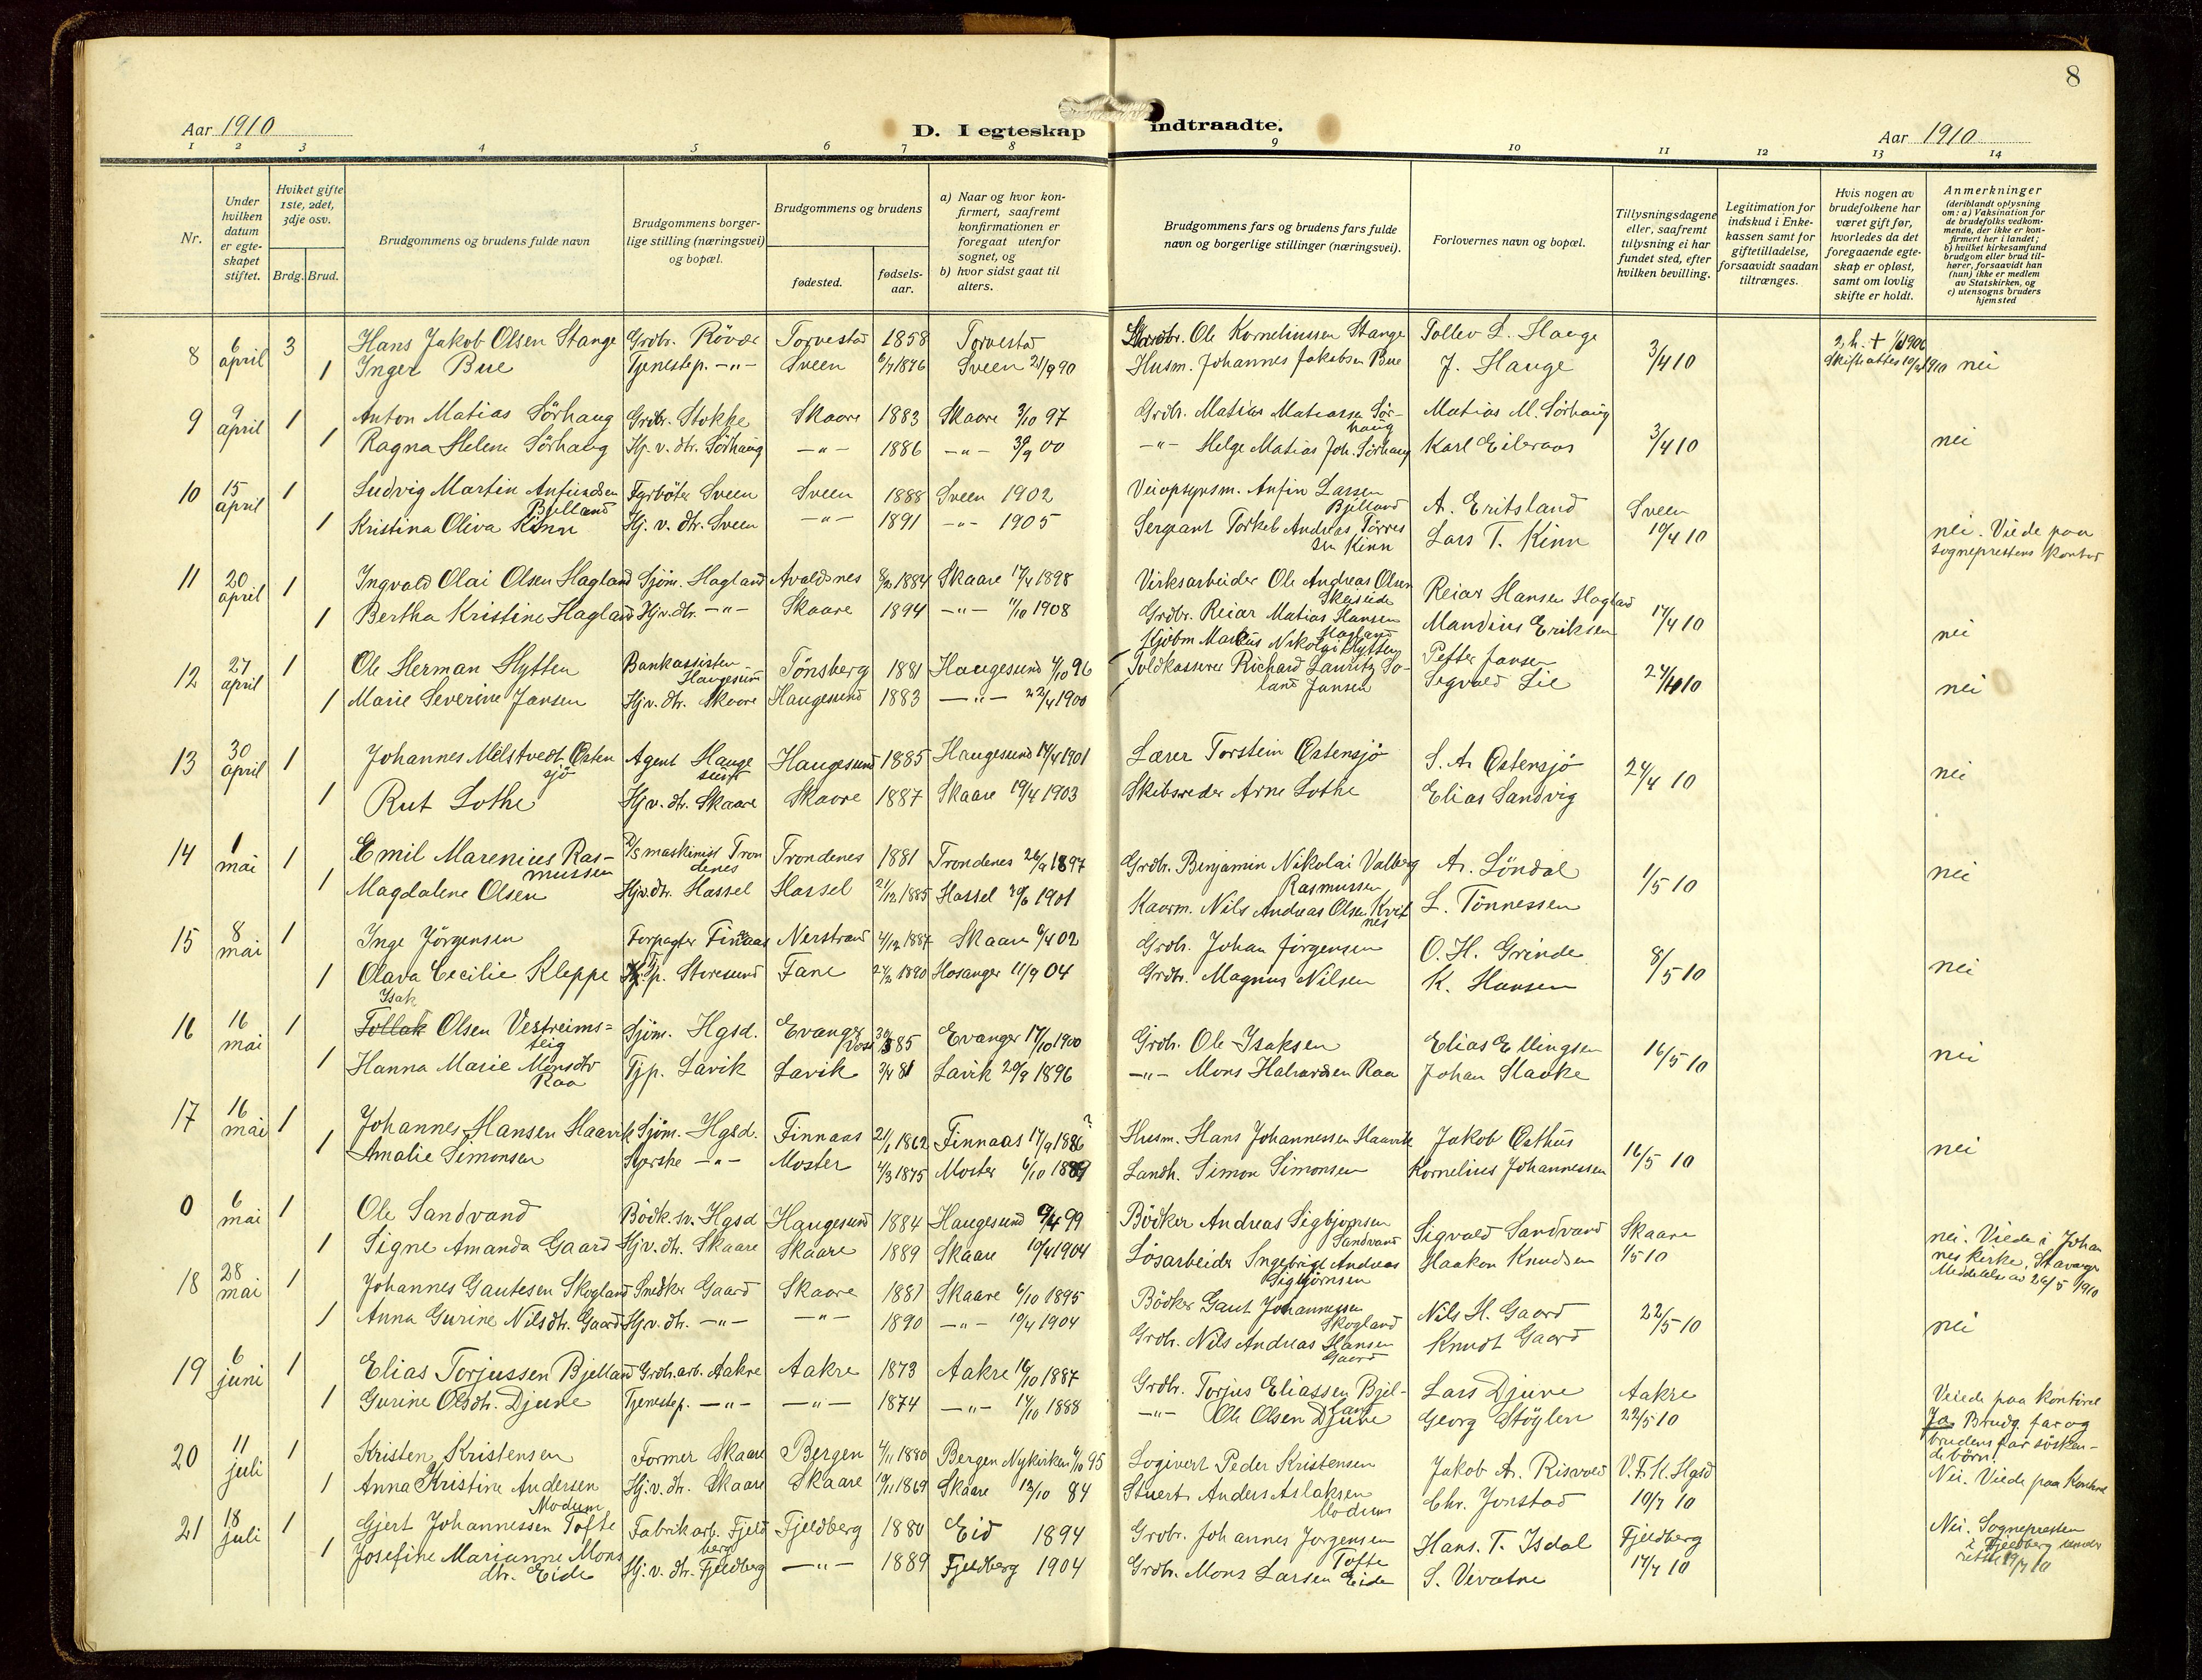 8
Aar 1910
D. I egteskap indtraadte.
Aar 1910
1 2 3 4 5 6 7 8 9 10 11 12 13 14
Nr.
Under hvilken datum er egteskapet stiftet.
Hviket gifte 1ste, 2det, 3dje osv.
Brdg. Brud.
Brudgommens og brudens fulde navn
Brudgommens borgerlige stilling (næringsvei) og bopæl.
Brudgommens og brudens
fødested.
fødselsaar.
a) Naar og hvor konfirmert, saafremt konfirmationen er foregaat utenfor sognet, og
b) hvor sidst gaat til alters.
Brudgommens fars og brudens fars fulde navn og borgerlige stillinger (næringsvei).
Forlovernes navn og bopæl.
Tillysningsdagene eller, saafremt tillysning ei har fundet sted, efter hvilken bevilling.
Legitimation for indskud i Enkekassen samt for giftetilladelse, forsaavidt saadan tiltrænges.
Hvis nogen av brudefolkene har været gift før, hvorledes da det foregaaende egteskap er opløst, samt om lovlig skifte er holdt.
Anmerkninger (deriblandt oplysning om: a) Vaksination for de brudefolks vedkommende, der ikke er konfirmert her i landet; b) hvilket kirkesamfund brudgom eller brud tilhører, forsaavidt han (hun) ikke er medlem av Statskirken, og c) utensogns bruders hjemsted
8 6 april 3 Hans Jakob Olsen Stange Grdbr. Røvær Torvestad 1858 Torvestad Ole Korneliussen Stange Tollev L. Hauge
1 Inger Bue Tjenestep. -"- Sveen 6/7 1876 Sveen 21/9 90 Husm. Johannes Jakobsen Bue J. Hauge 3/4 10 nei
9 9 april 1 Anton Matias Sörhaug Grdbr. Stokke Skaare 1883 Skaare 3/10 97 Grdbr. Matias Matiassen Sörhaug Matias M. Sörhaug
1 Ragna Helene Sörhaug Hj. v. dtr. Sörhaug -"- 1886 -"- 30/9 00 -"- Helge Matias Joh. Sörhaug Karl Eileraas 3/4 10 nei
10 15 april 1 Ludvig Martin Anfindsen Bjelland Fyrböter Sveen Sveen 1888 Sveen 1902 Veiopsynsm. Anfin Larsen Bjelland A. Eritsland Sveen
1 Kristina Oliva Kinn Hj. v. dtr. Sveen -"- 1891 -"- 1905 Sergeant Torkel Andreas Törressen Kinn Lars T. Kinn 10/4 10 nei. Viede paa sogneprestens kontor
11 20 april 1 Ingvald Olai Olsen Hagland Sjöm. Hagland Avaldsnes 1884 Skaare 17/4 1898 Virksarbeider Ole Andreas Olsen Reiar Hansen Hagland
1 Bertha Kristine Hagland Hj v. dtr. -"- Skaare 1894 -"- 1/10 1908 Grdbr. Reiar Matias Hansen Hagland Mandius Eriksen 17/4 10 nei
12 27 april 1 Ole Herman Hytten Bankassisten Haugesund Tönsberg 1881 Haugesund 4/10 96 Kjöbm Markus Nikolai Hytten Petter Jansen
1 Marie Severine Jansen Hj v. dtr. Skaare Haugesund 1883 -"- 22/4 1900 Toldkasserer Richard Lauritz Soland Jansen Sigvald Lie 24/4 10 nei
13 30 april 1 Johannes Mølstvedt Østensjö Agent Haugesund Haugesund 1885 Haugesund 14/4 1901 Lærer Torstein Østensjö S. A. Østensjö
1 Rut Lothe Hj v. dtr. Skaare Skaare 1887 Skaare 19/4 1903 Skibsreder Arne Lothe Elias Sandvig 24/4 10 nei
14 1 mai 1 Emil Marenius Rasmussen D/S maskinist Trondenes Trondenes 1881 Trondenes 26/9 1897 Grdbr. Benjamin Nikolai Valberg Rasmussen A. Löndal
1 Magdalene Olsen Hj v. dtr. Hassel Hassel 21/12 1885 Hassel 1901 Kaarm. Nils Andreas Olsen Kvitnes L. Tönnessen 1/5 10 nei
15 8 mai 1 Inge Jörgensen Forpagter Finnaas Nerstrand 4/12 1887 Skaare 6/4 02 Grdb. Johan Jörgensen O. H. Grinde
1 Olava Cecilie Kleppe Tjp. Storesund Fane 1880 Hosanger 11/9 04 Grdbr. Magnus Nilsen K. Hansen 8/5 10 nei
16 16 mai 1 Isak Tollak Olsen Vestreimsteig Sjöm. Hgsd. Evanger Voss 85 Evanger 17/10 1900 Grdb. Ole Isaksen Elias Ellingsen
1 Hanna Marie Monsdtr Raa Tjp. Lavik Lavik 3/4 81 Lavik 20/9 1896 -"- Mons Halvardsen Raa Johan Slaake 16/5 10 nei
17 16 mai 1 Johannes Hansen Haavik Sjöm. Hgsd. Finnaas 21/1 1862 Finnaas 17/9 1886? Husm. Hans Johannessen Haavik Jakob Østhus
1 Amalie Simonsen -"- Moster 4/3 1875 Moster 6/10 1889 Landh. Simon Simonsen Kornelius Johannessen 16/5 10 nei
0 6 mai 1 Ole Sandvand Bödk. sv. Hgsd Haugesund 1884 Haugesund 9/4 99 Bödker Andreas Sigbjörnsen Sandvand Sigvald Sandvand Skaare
1 Signe Amanda Gaard Hj v. dtr. Skaare Skaare 1889 Skaare 10/4 1904 Lösarbeider Ingebrigt Andreas Sigbjörnsen Haakon Knudsen 1/5 10 nei. Viede i Johannes kirke, Stavanger Meddelelse av 26/5 1910
18 28 mai 1 Johannes Gautesen Skogland Snedker Gaard Skaare 1881 Skaare 6/10 1895 Bödker Gaut Johannessen Skogland Nils H. Gaard
1 Anna Gurine Nilsdtr. Gaard Hj v. dtr. -"- -"- 1890 -"- 10/4 1904 Grdb. Nils Andreas Hansen Gaard Knudt Gaard 22/5 10 nei
19 6 juni 1 Elias Torjussen Bjelland Grdb. arb. Aakre Aakre 1873 Aakre 16/10 1887 Grdb. Torjus Eliassen Bjelland Lars Djuve Aakre
1 Gurine Olsdtr. Djuve Tjenestep. -"- -"- 1874 -"- 14/10 1888 -"- Ole Olsen Djuve Georg Stöylen 22/5 10 Veiede paa kontoret Ja Brudg. far og brudens far söskendebörn.
20 11 juli 1 Kristen Kristensen Former Skaare Bergen 4/11 1880 Bergen Nykirken 6/10 95 Logivert Peder Kristensen Jakob A. Risvold V. F. K. Hgsd
1 Anna Kristine Andersen Modum Hj. v. dtr. Skaare Skaare 19/11 1869 Skaare 12/10 84 Stuert Anders Aslaksen Modum Chr. Jonstad 10/7 10 Nei. Viede paa Kontoret
21 18 juli 1 Gjert Johannessen Tofte Fabrikarb. Fjeldberg Fjeldberg 1880 Eid 1894 Grdbr. Johannes Jorgensen Tofte Hans. T. Isdal Fjeldberg
1 Josefine Marianne Monsdtr. Eide Hj. v. dtr. Fjeldberg -"- 1889 Fjeldberg 1904 Grdbr. Mons Larsen Eide S. Vevatne 17/7 10 Nei. Sognepresten i Fjeldberg 19/7 10